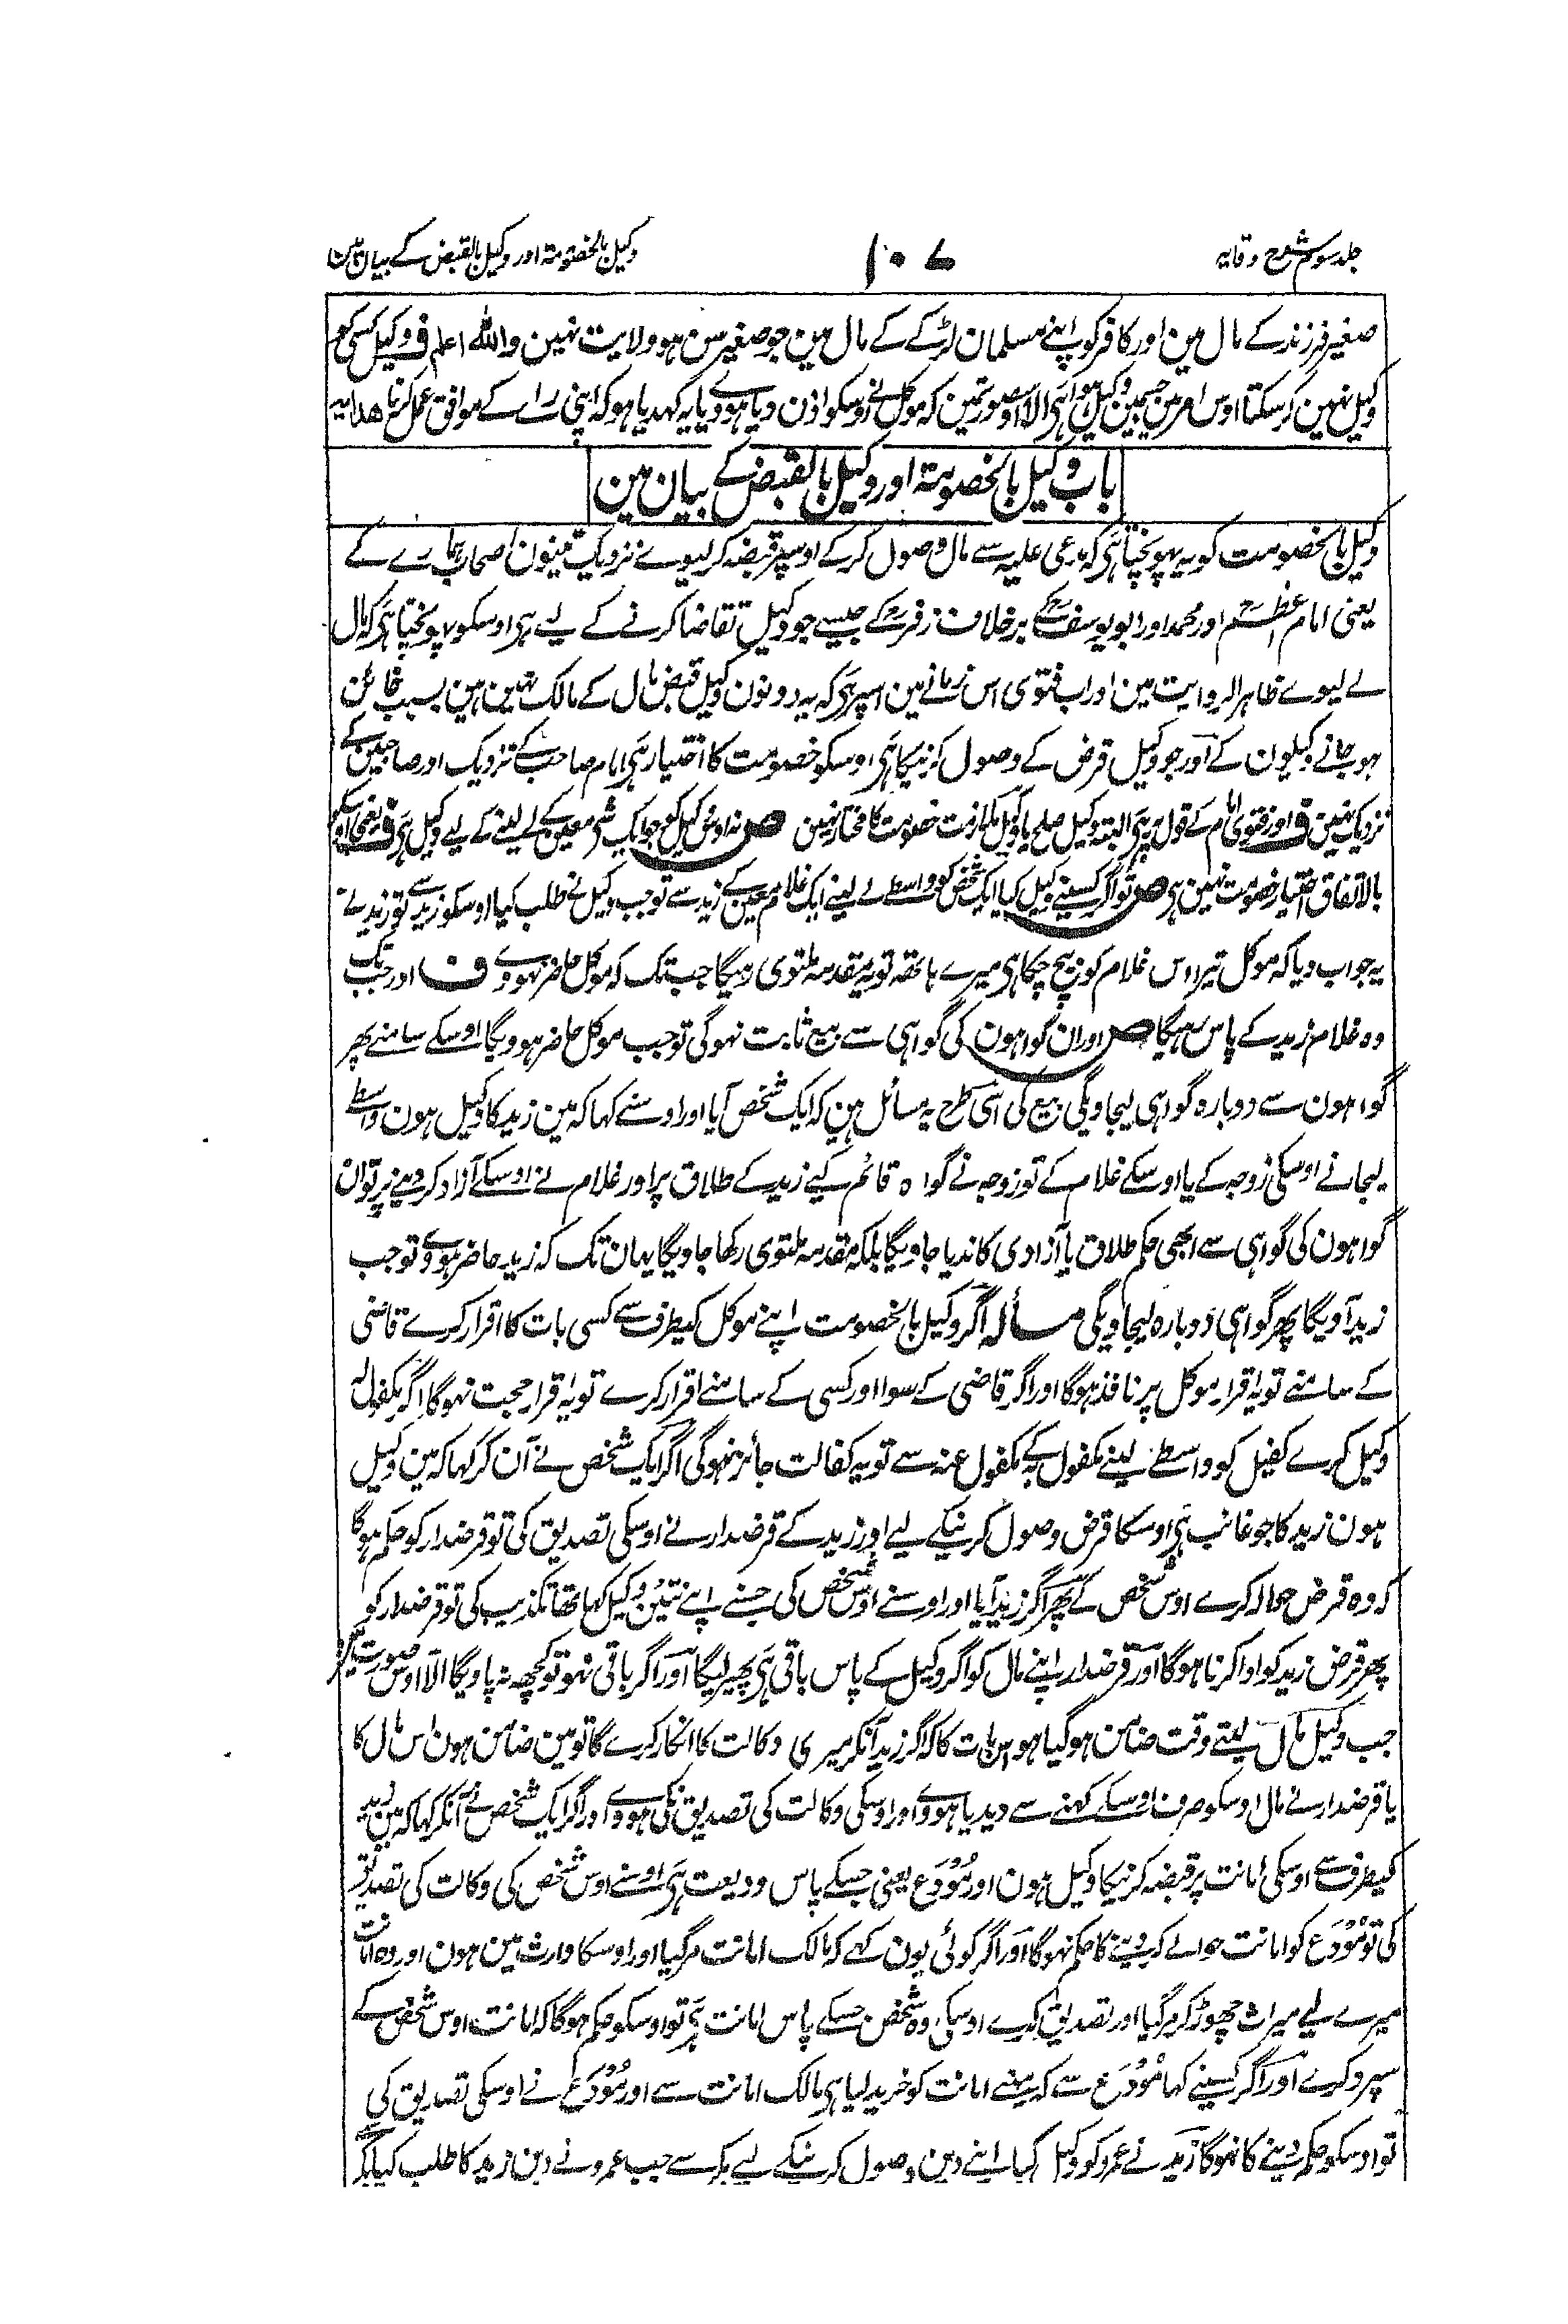 جلد سوم شرح وقایہ
۱۰۷
وکیل بالخصومۃ اور وکیل بالقبض کے بیان مین
صغیر فرزند کے مال مین اور کافر کو اپنے مسلمان لڑکے کے مال مین جو صغیر سن ہو ولایت نہین واللہ اعلم ف وکیل کسی کو
وکیل نہین کر سکتا اوس امر مین جسمین وکیل ہوا ہی الا اوس صورتمین کہ موکل نے اوسکو اذن دیا ہووے یا یہ کہدیا ہو کہ اپنی راے کے موافق عمل کرنا ھدایہ
باب وکیل بالخصومۃ اور وکیل بالقبض کے بیان مین
وکیل بالخصومت کو یہ پہونچتا ہی کہ مدعی علیہ سے مال وصول کر کے اوسپر قبضہ کر لیوے نزدیک تینون اصحاب ہمارے کے
یعنی امام اعظم اور محمد اور ابو یوسف کے بر خلاف زفر کے جیسے جو وکیل تقاضا کرنے کے لیے ہی اوسکو پہونچتا ہی کہ مال
لے لیوے ظاہر الروایت مین اور اب فتوی اس زمانے مین اسپر ہی کہ یہ دونون وکیل قبض مال کے مالک نہین ہین بسبب خائن
ہو جانے وکیلون کے اور جو وکیل قرض کے وصول کرنیکا ہی اوسکو خصومت کا اختیار ہی امام صاحب کے نزدیک اور صاحبین کے
نزدیک نہین ف اور فتوی امام کے قول پر ہی البتہ وکیل صلح یا وکیل ملازمت خصومت کا مختار نہین ص نہ اوس وکیل کو جو ایک شی معین کے لے لینے کے لیے وکیل ہی ف یعنی اوسکو
بالاتفاق اختیار خصومت نہین ہی ص تو اگر کسینے وکیل کیا ایک شخص کو واسطے لے لینے ایک غلام معین کے زید سے تو جب وکیل نے طلب کیا اوسکو زید سے تو زید نے
یہ جواب دیا کہ موکل تیرا اوس غلام کو بیچ چکا ہی میرے ہاتھ تو یہ مقدمہ ملتوی رہیگا جب تک کہ موکل حاضر نہووے ف اور جب تک
وہ غلام زید کے پاس رہیگا ص اور ان گواہون کی گواہی سے بیع ثابت نہوگی تو جب موکل حاضر ہوویگا اوسکے سامنے پھر
گواہون سے دوبارہ گواہی لیجاویگی بیع کی اسی طرح یہ مسائل ہین کہ ایک شخص آیا اور اوسنے کہا کہ مین زید کا وکیل ہون واسطے
لیجانے اوسکی زوجہ کے یا اوسکے غلام کے تو زوجہ نے گواہ قائم کیے زید کے طلاق پر اور غلام نے اوسکے آزاد کر دینے پر تو ان
گواہون کی گواہی سے ابھی حکم طلاق یا آزادی کا ندیا جاویگا بلکہ مقدمہ ملتوی رکھا جاویگا یہان تک کہ زید حاضر ہووے تو جب
زید آویگا پھر گواہی دوبارہ لیجاویگی مسألہ اگر وکیل بالخصومت اپنے موکل کیطرف سے کسی بات کا اقرار کرے قاضی
کے سامنے تو یہ اقرار موکل پر نافذ ہوگا اور اگر قاضی کے سوا اور کسی کے سامنے اقرار کرے تو یہ اقرار حجت نہوگا اگر مکفول لہ
وکیل کرے کفیل کو واسطے لینے مکفول بہ کے مکفول عنہ سے تو یہ کفالت جائز نہوگی اگر ایک شخص نے آن کر کہا کہ مین وکیل
ہون زید کا جو غائب ہی اوسکا قرض وصول کرنیکے لیے اور زید کے قرضدار نے اوسکی تصدیق کی تو قرضدار کو حکم ہوگا
کہ وہ قرض حوالہ کرے اوس شخص کے پھر اگر زید آیا اور اوسنے اوس شخص کی جسنے اپنے تئین وکیل کہا تھا تکذیب کی تو قرضدار کو
پھر قرض زید کو ادا کرنا ہوگا اور قرضدار اپنے مال کو اگر وکیل کے پاس باقی ہی پھیر لیگا اور اگر باقی نہو تو کچھ نہ پاویگا الا اوس صورت مین
جب وکیل مال لیتے وقت ضامن ہو گیا ہو اس بات کا کہ اگر زید آنکر میری وکالت کا انکار کرے گا تو مین ضامن ہون اس مال کا
یا قرضدار نے مال اوسکو صرف اوسکے کہنے سے دیدیا ہووے اور اوسکی وکالت کی تصدیق نکی ہووے اور اگر ایک شخص نے آنکر کہا کہ مین زید
کیطرف سے اوسکی امانت پر قبضہ کرنیکا وکیل ہون اور مُوْدَع یعنی جسکے پاس ودیعت ہی اوسنے اوس شخص کی وکالت کی تصدیق
کی تو مُوْدَع کو امانت حوالے کر دینے کا حکم نہوگا اور اگر کوئی یون کہے کہ مالک امانت مر گیا اور اوسکا وارث مین ہون اور وہ امانت
میرے لیے میراث چھوڑ کر مر گیا اور تصدیق کرے اوسکی وہ شخص جسکے پاس امانت ہی تو اوسکو حکم ہوگا کہ امانت اوس شخص کے
سپرد کرے اور اگر کسینے کہا مُوْدَع سے کہ مینے امانت کو خرید لیا ہی مالک امانت سے اور مُوْدَع نے اوسکی تصدیق کی
تو اوسکو حکم دینے کا نہوگا زید نے عمرو کو وکیل کیا اپنے دین وصول کرنیکے لیے بکر سے جب عمرو نے دین زید کا طلب کیا بکر